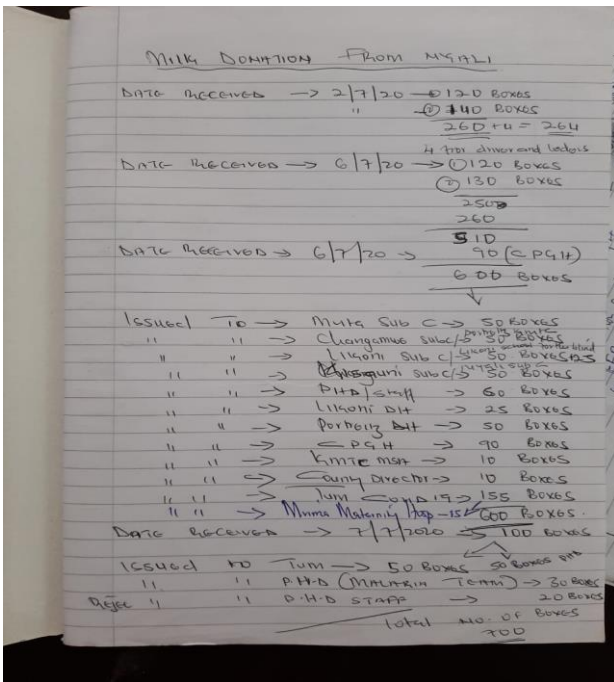 MILK DONATION FROM NYALI
DATE RECEIVED → 2/7/20 → ① 120 BOXES
" → ② 140 BOXES
260 + 4 = 264
4 for driver and loaders
DATE RECEIVED → 6/7/20 → ① 120 BOXES
② 130 BOXES
250
260
510
DATE RECEIVED → 6/7/20 → 90 (CPGH)
600 BOXES
Issued To → Mvita Sub C → 50 BOXES
" " → Changamwe subc/→ 50 BOXES
" " → Likoni Sub c/→ 50 BOXES + 25
" " → Kisauni subc/→ 50 BOXES
" " → PHD/staff → 60 BOXES
" " → Likoni DH → 25 BOXES
" " → Portreitz DH → 50 BOXES
" " → CPGH → 90 BOXES
" " → KMTC MSA → 10 BOXES
" " → County Director → 10 BOXES
" " → Tum Covid 19 → 155 BOXES
" " → Mvma Maternity Hosp - 15 600 BOXES.
DATE RECEIVED → 7/7/2020 → 100 BOXES
Issued to Tum → 50 BOXES 50 BOXES PHD
" " P.H.D (MALARIA TEAM) → 30 BOXES
" " P.H.D STAFF → 20 BOXES
Total NO. OF BOXES
700